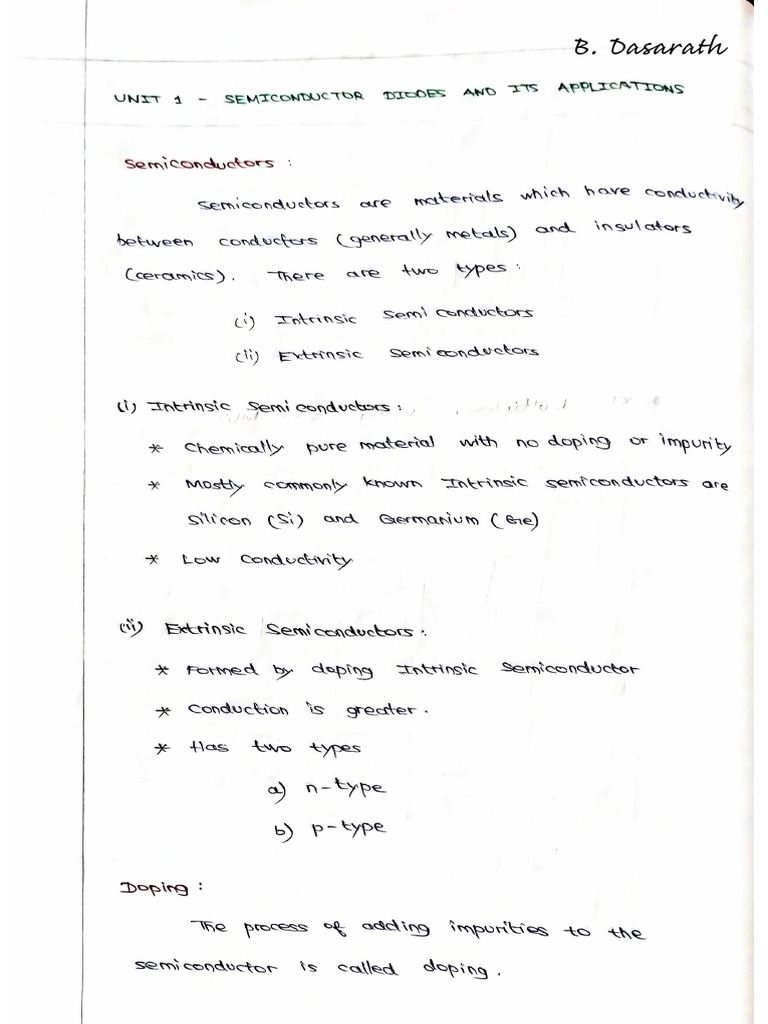 B. Dasarath
UNIT 1 - SEMICONDUCTOR DIODES AND ITS APPLICATIONS
Semiconductors :
Semiconductors are materials which have conductivity
between conductors (generally metals) and insulators
(ceramics). There are two types :
(i) Intrinsic Semiconductors
(ii) Extrinsic Semiconductors
(i) Intrinsic Semiconductors :
* Chemically pure material with no doping or impurity
* Mostly commonly known Intrinsic semiconductors are
Silicon (Si) and Germanium (Ge)
* Low Conductivity
(ii) Extrinsic Semiconductors :
* Formed by doping Intrinsic Semiconductor
* Conduction is greater.
* Has two types
a) n-type
b) p-type
Doping :
The process of adding impurities to the
semiconductor is called doping.